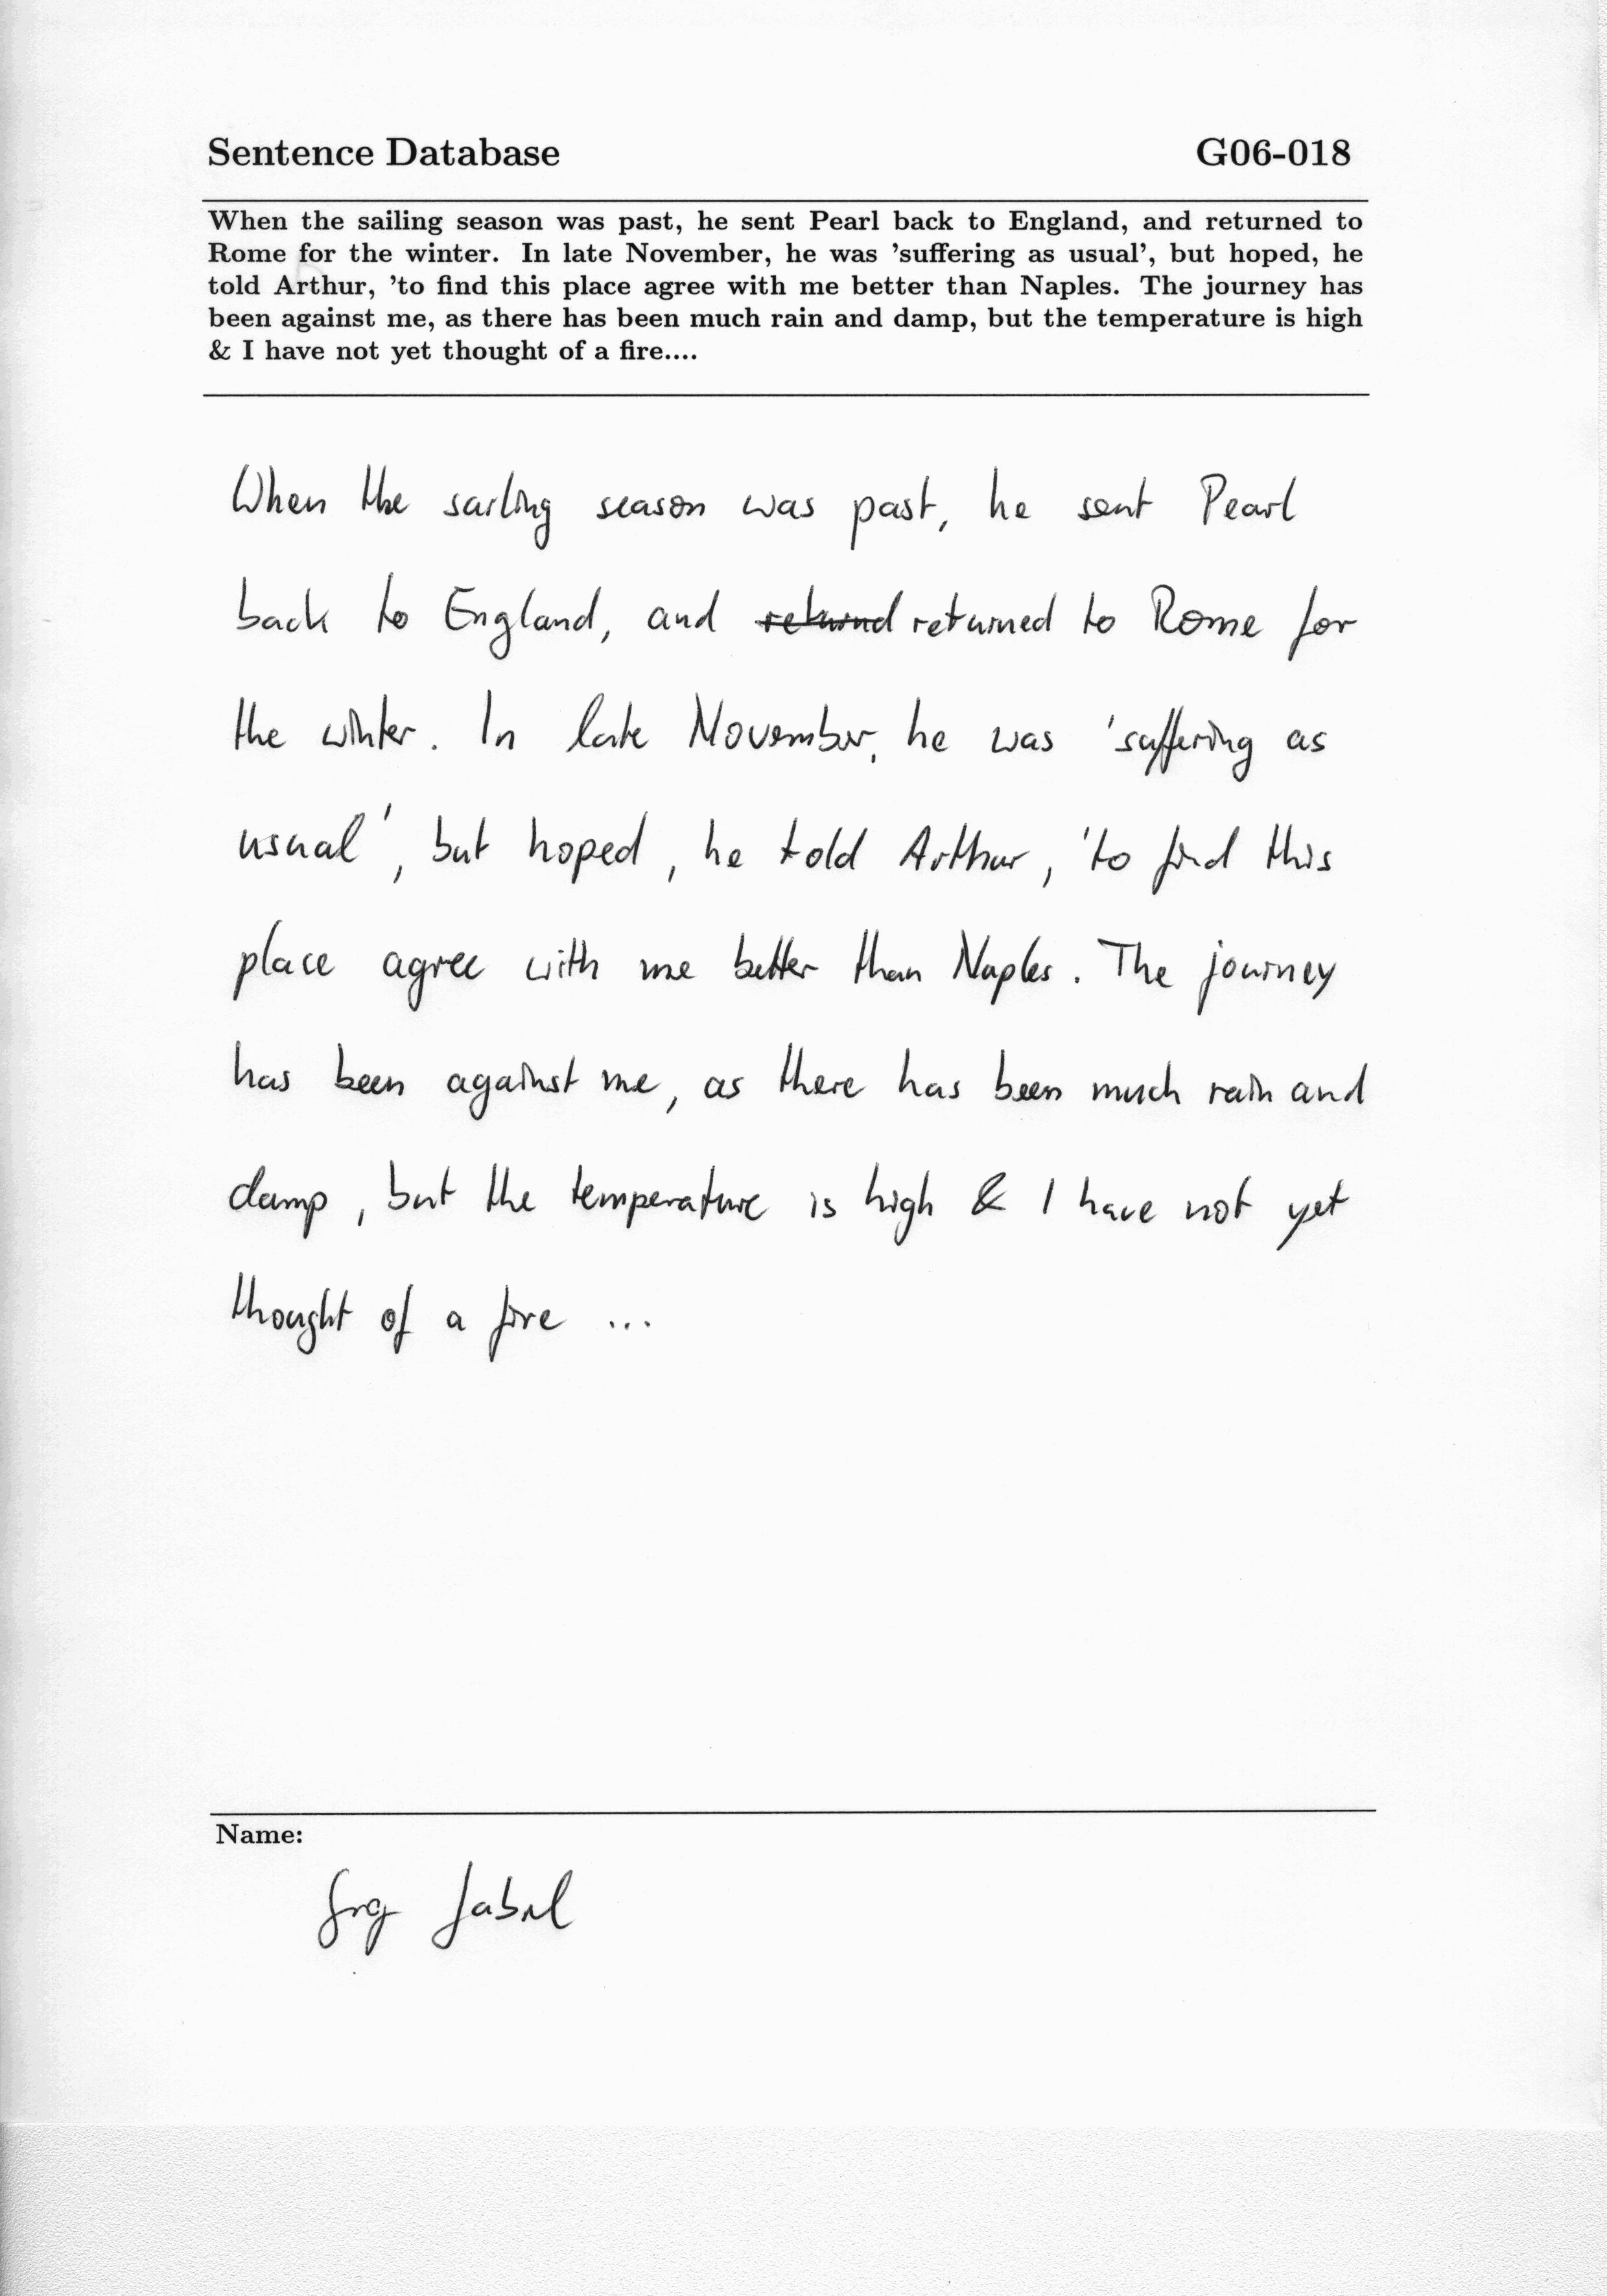 Sentence Database G06-018
When the sailing season was past, he sent Pearl back to England, and returned to
Rome for the winter. In late November, he was 'suffering as usual', but hoped, he
told Arthur, 'to find this place agree with me better than Naples. The journey has
been against me, as there has been much rain and damp, but the temperature is high
& I have not yet thought of a fire....
When the sailing season was past, he sent Pearl
back to England, and returnd returned to Rome for
the winter. In late November, he was 'suffering as
usual', but hoped, he told Arthur, 'to find this
place agree with me better than Naples. The journey
has been against me, as there has been much rain and
damp, but the temperature is high & I have not yet
thought of a fire ...
Name: